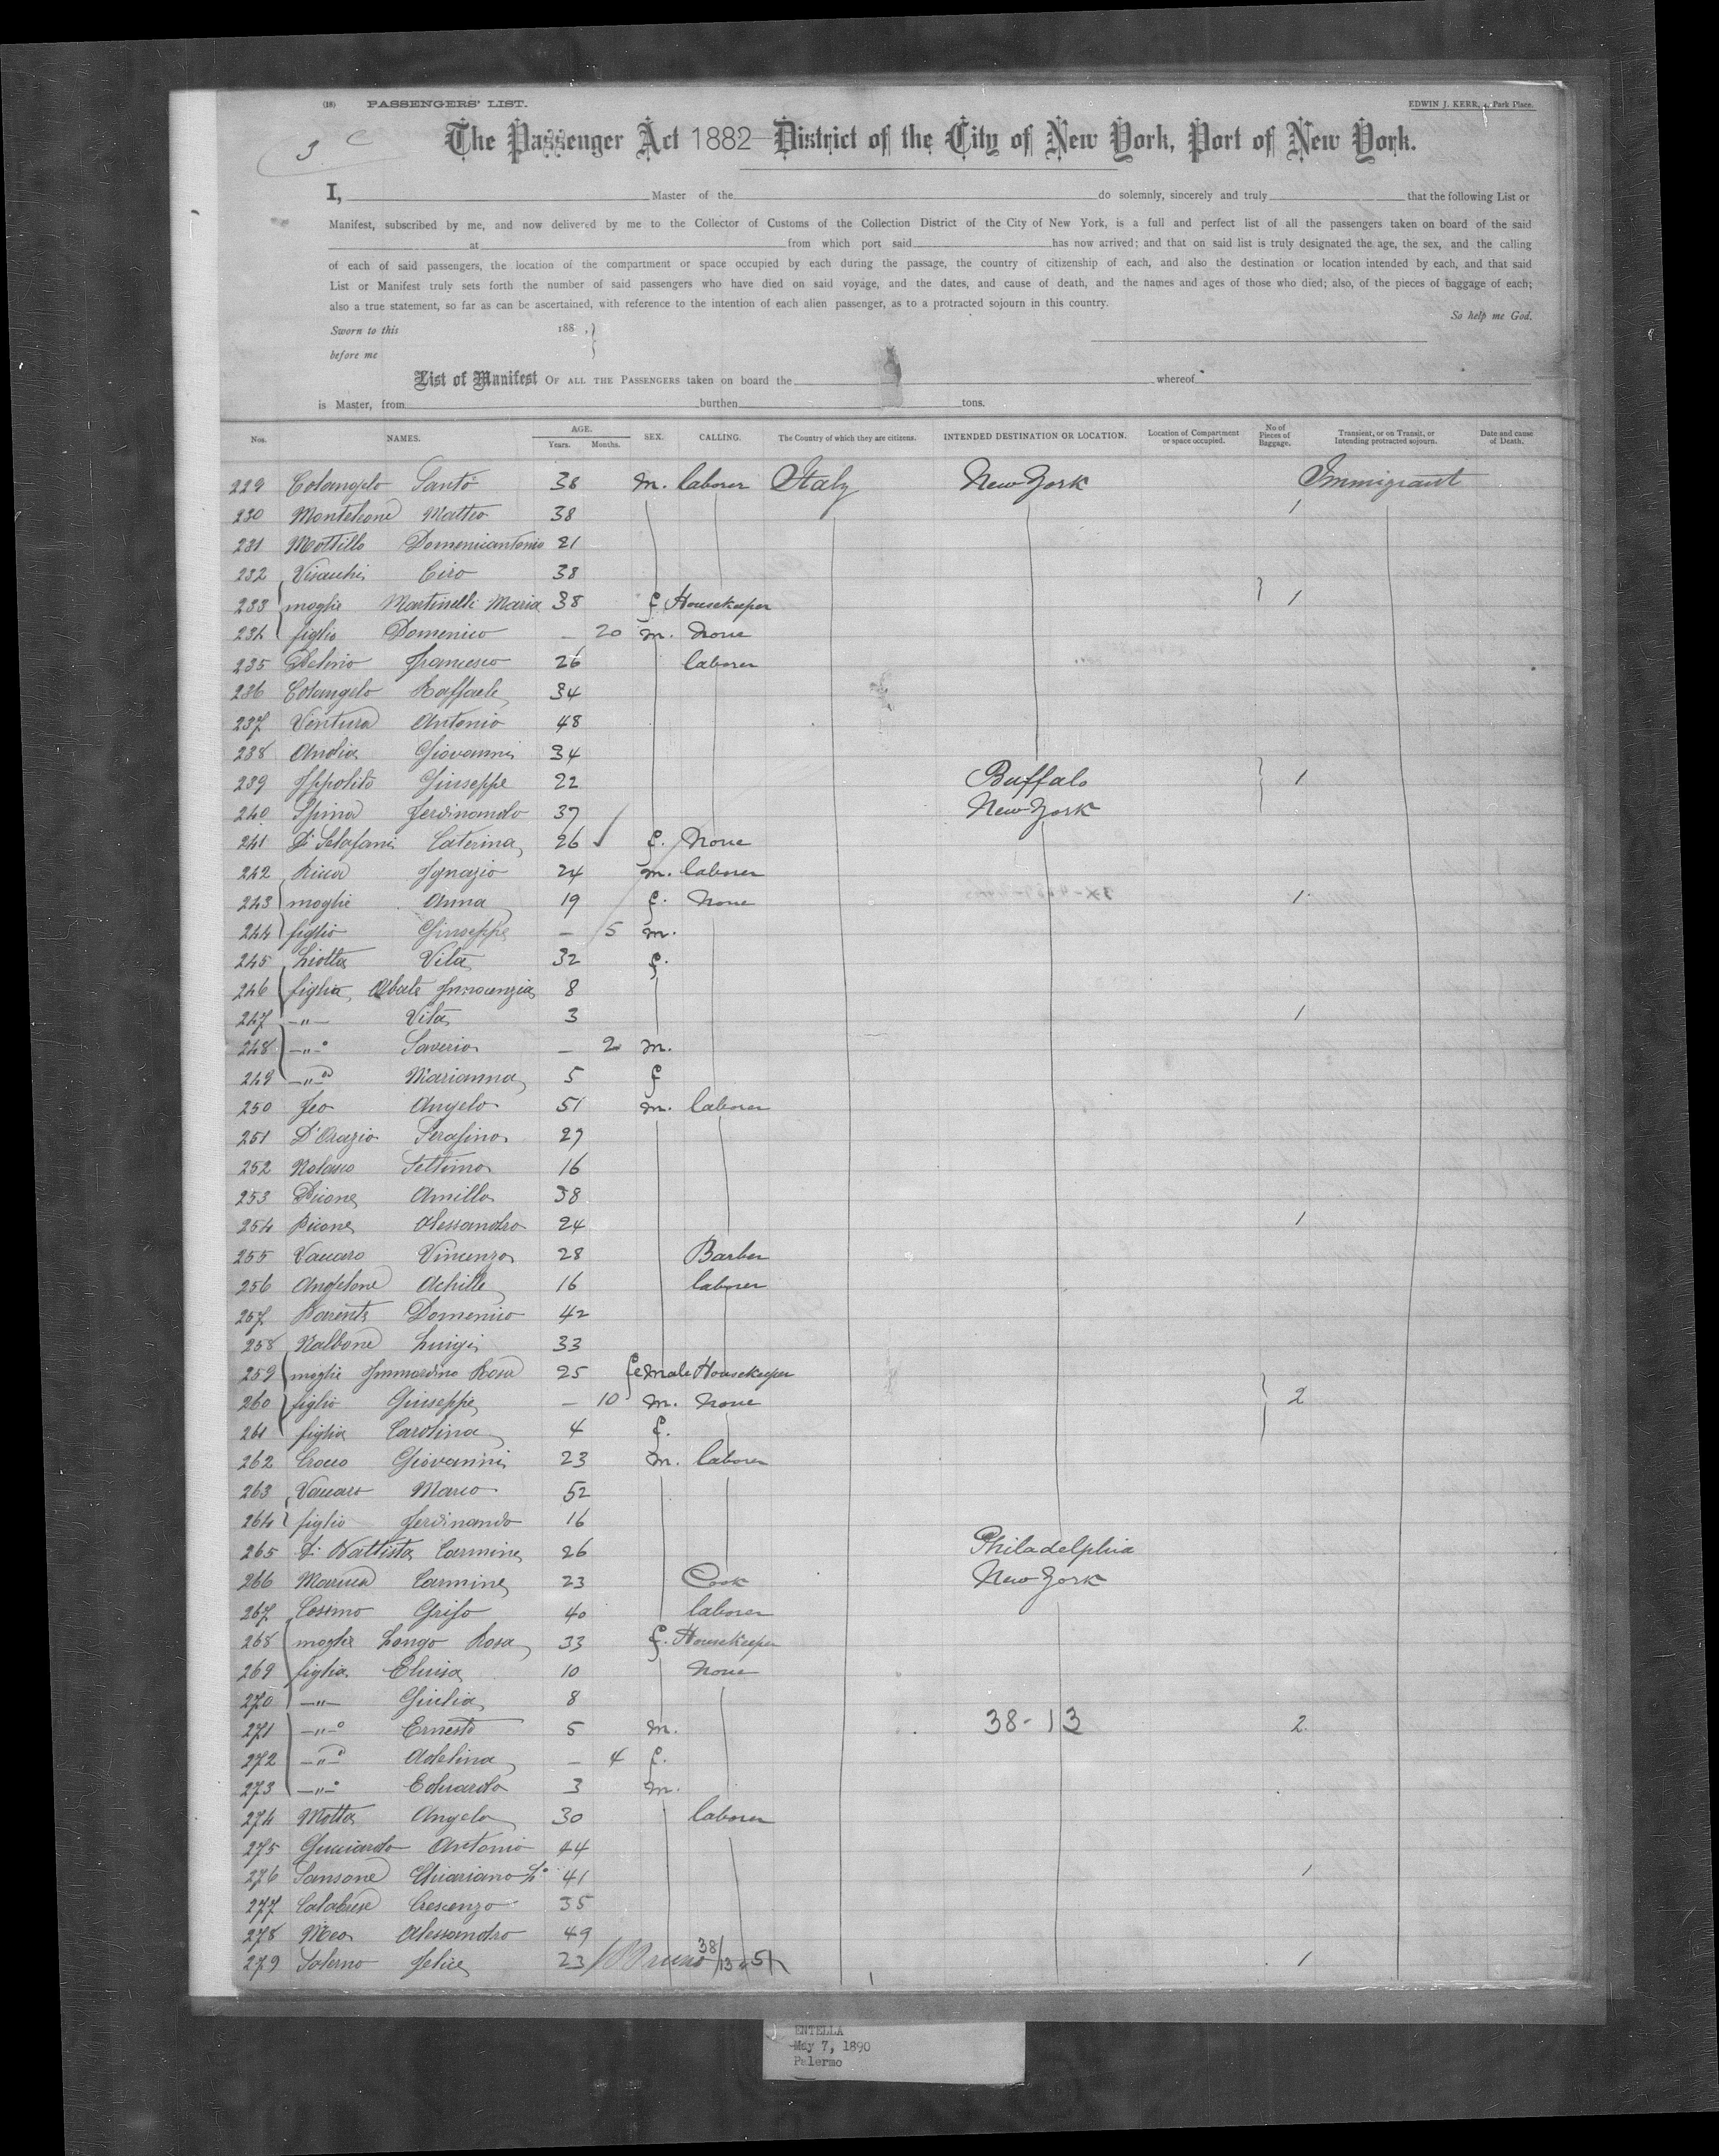 (18) PASSENGERS' LIST. EDWIN J. KERR, Park Place.
3 c
The Passenger Act 1882 District of the City of New York, Port of New York.
I, Master of the do solemnly, sincerely and truly that the following List or
Manifest, subscribed by me, and now delivered by me to the Collector of Customs of the Collection District of the City of New York, is a full and perfect list of all the passengers taken on board of the said
at from which port said has now arrived; and that on said list is truly designated the age, the sex, and the calling
of each of said passengers, the location of the compartment or space occupied by each during the passage, the country of citizenship of each, and also the destination or location intended by each, and that said
List or Manifest truly sets forth the number of said passengers who have died on said voyage, and the dates, and cause of death, and the names and ages of those who died; also, of the pieces of baggage of each;
also a true statement, so far as can be ascertained, with reference to the intention of each alien passenger, as to a protracted sojourn in this country.
So help me God.
Sworn to this 188 ,
before me
List of Manifest OF ALL THE PASSENGERS taken on board the whereof
is Master, from burthen tons.
Nos. NAMES. AGE. Years. Months. SEX. CALLING. The Country of which they are citizens. INTENDED DESTINATION OR LOCATION. Location of Compartment or space occupied. No of Pieces of Baggage. Transient, or on Transit, or Intending protracted sojourn. Date and cause of Death.
229 Colangelo Santo 38 m. laborer Italy New York Immigrant
230 Monteleone Matteo 38 1
231 Mottillo Domenicantonio 21
232 Ciro 38
233 moglie Martinelli Maria 38 f Housekeeper 1
234 figlio Domenico - 20 m. none
235 Francesco 26 laborer
236 Colangelo Raffaele 34
237 Ventura Antonio 48
238 Giovanni 34
239 Ippolito Giuseppe 22 Buffalo 1
240 Spina Ferdinando 37 New York
241 Di Sclafani Caterina 26 f. None
242 Ricca Ignazio 24 m. laborer
243 moglie Anna 19 f. None 1
244 figlio Giuseppe - 5 m.
245 Liotta Vita 32 f.
246 figlia Abate Innocenzia 8
247 -"- Vita 3 1
248 -"-o Saverio - 2 m.
249 -"- Marianna 5 f
250 Feo Angelo 51 m. laborer
251 D'Orazio Serafino 27
252 Settimo 16
253 38
254 Alessandro 24 1
255 Vaccaro Vincenzo 28 Barber
256 Angelone Achille 16 laborer
257 Parente Domenico 42
258 Luigi 33
259 moglie Rosa 25 female Housekeeper
260 figlio Giuseppe - 10 m. none 2
261 figlia Carolina 4 f.
262 Crocco Giovanni 23 m. laborer
263 Vaccaro Marco 52
264 figlio Ferdinando 16
265 Di Battista Carmine 26 Philadelphia
266 Carmine 23 Cook New York
267 Cosimo Grifo 40 laborer
268 moglie Longo Rosa 33 f. Housekeeper
269 figlia Eluisa 10 none
270 -"- Giulia 8
271 -"-o Ernesto 5 m. 38-13 2.
272 -"- Adelina - 4 f.
273 -"-o Eduardo 3 m.
274 Motta Angelo 30 laborer
275 Gucciardo Antonio 44
276 Sansone 41 1
277 Calabrese Crescenzo 35
278 Meo Alessandro 49
279 Salerno Felice 23 38/13 51 1
ENTELLA
May 7, 1890
Palermo